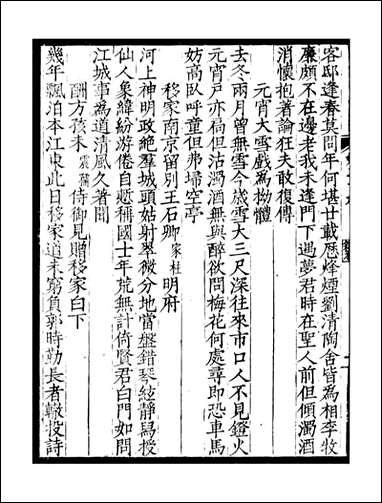 客邸逢春莫問年何堪廿載歷烽煙劉清陶舍皆為相李牧
廉頗不在邊老我未逢門下遇夢君時在聖人前但傾濁酒
消懷抱著論狂夫敢復傳
元宵大雪戲為拗體
去冬兩月曾無雪今歲雪大三尺深往來市口人不見鐙火
元宵戶亦扃但沽濁酒無與醉欲問梅花何處尋即恐車馬
妨高臥呼童但弗埽空亭
移家南京留別王石卿家柱明府
河上神明政絶羣城頭姑射翠微分地當盤錯琴絃靜舄授
仙人象緯紛游倦自慙稱國士年荒無計倚賢君白門如問
江城事為道清風久著聞
酬方孩未震孺侍御見贈移家白下
幾年飄泊本江東此日移家道未窮負郭時勤長者轍投詩